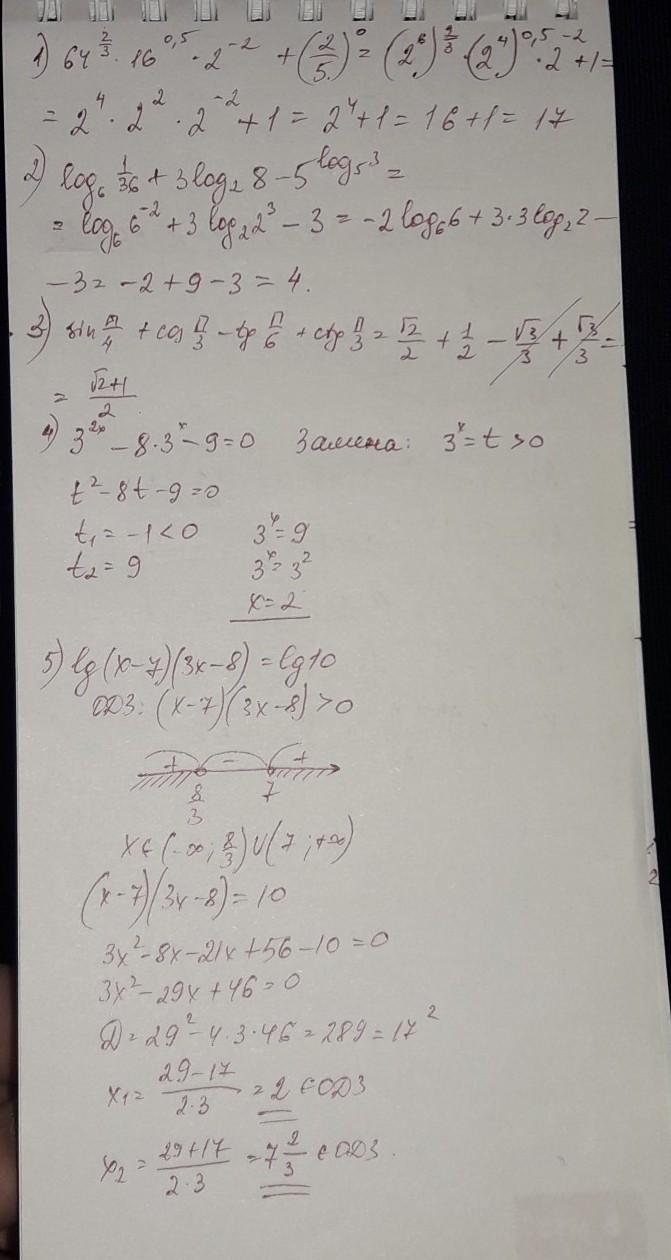 1) 64^{2/3} · 16^{0,5} · 2^{-2} + (2/5)^0 = (2^6)^{2/3} · (2^4)^{0,5} · 2^{-2} + 1 =
= 2^4 · 2^2 · 2^{-2} + 1 = 2^4 + 1 = 16 + 1 = 17
2) log_6 1/36 + 3 log_2 8 - 5^{log_5 3} =
= log_6 6^{-2} + 3 log_2 2^3 - 3 = -2 log_6 6 + 3·3 log_2 2 -
-3 = -2 + 9 - 3 = 4.
3) sin π/4 + cos π/3 - tg π/6 + ctg π/3 = √2/2 + 1/2 - √3/3 + √3/3 =
= (√2+1)/2
4) 3^{2x} - 8·3^x - 9 = 0 Замена: 3^x = t > 0
t^2 - 8t - 9 = 0
t_1 = -1 < 0 3^x = 9
t_2 = 9 3^x = 3^2
x = 2
5) lg(x-7)(3x-8) = lg10
ОДЗ: (x-7)(3x-8) > 0
+ - +
8/3 7
x ∈ (-∞; 8/3) ∪ (7; +∞)
(x-7)(3x-8) = 10
3x^2 - 8x - 21x + 56 - 10 = 0
3x^2 - 29x + 46 = 0
D = 29^2 - 4·3·46 = 289 = 17^2
x_1 = (29-17)/(2·3) = 2 ∈ ОДЗ
x_2 = (29+17)/(2·3) = 7 2/3 ∈ ОДЗ.